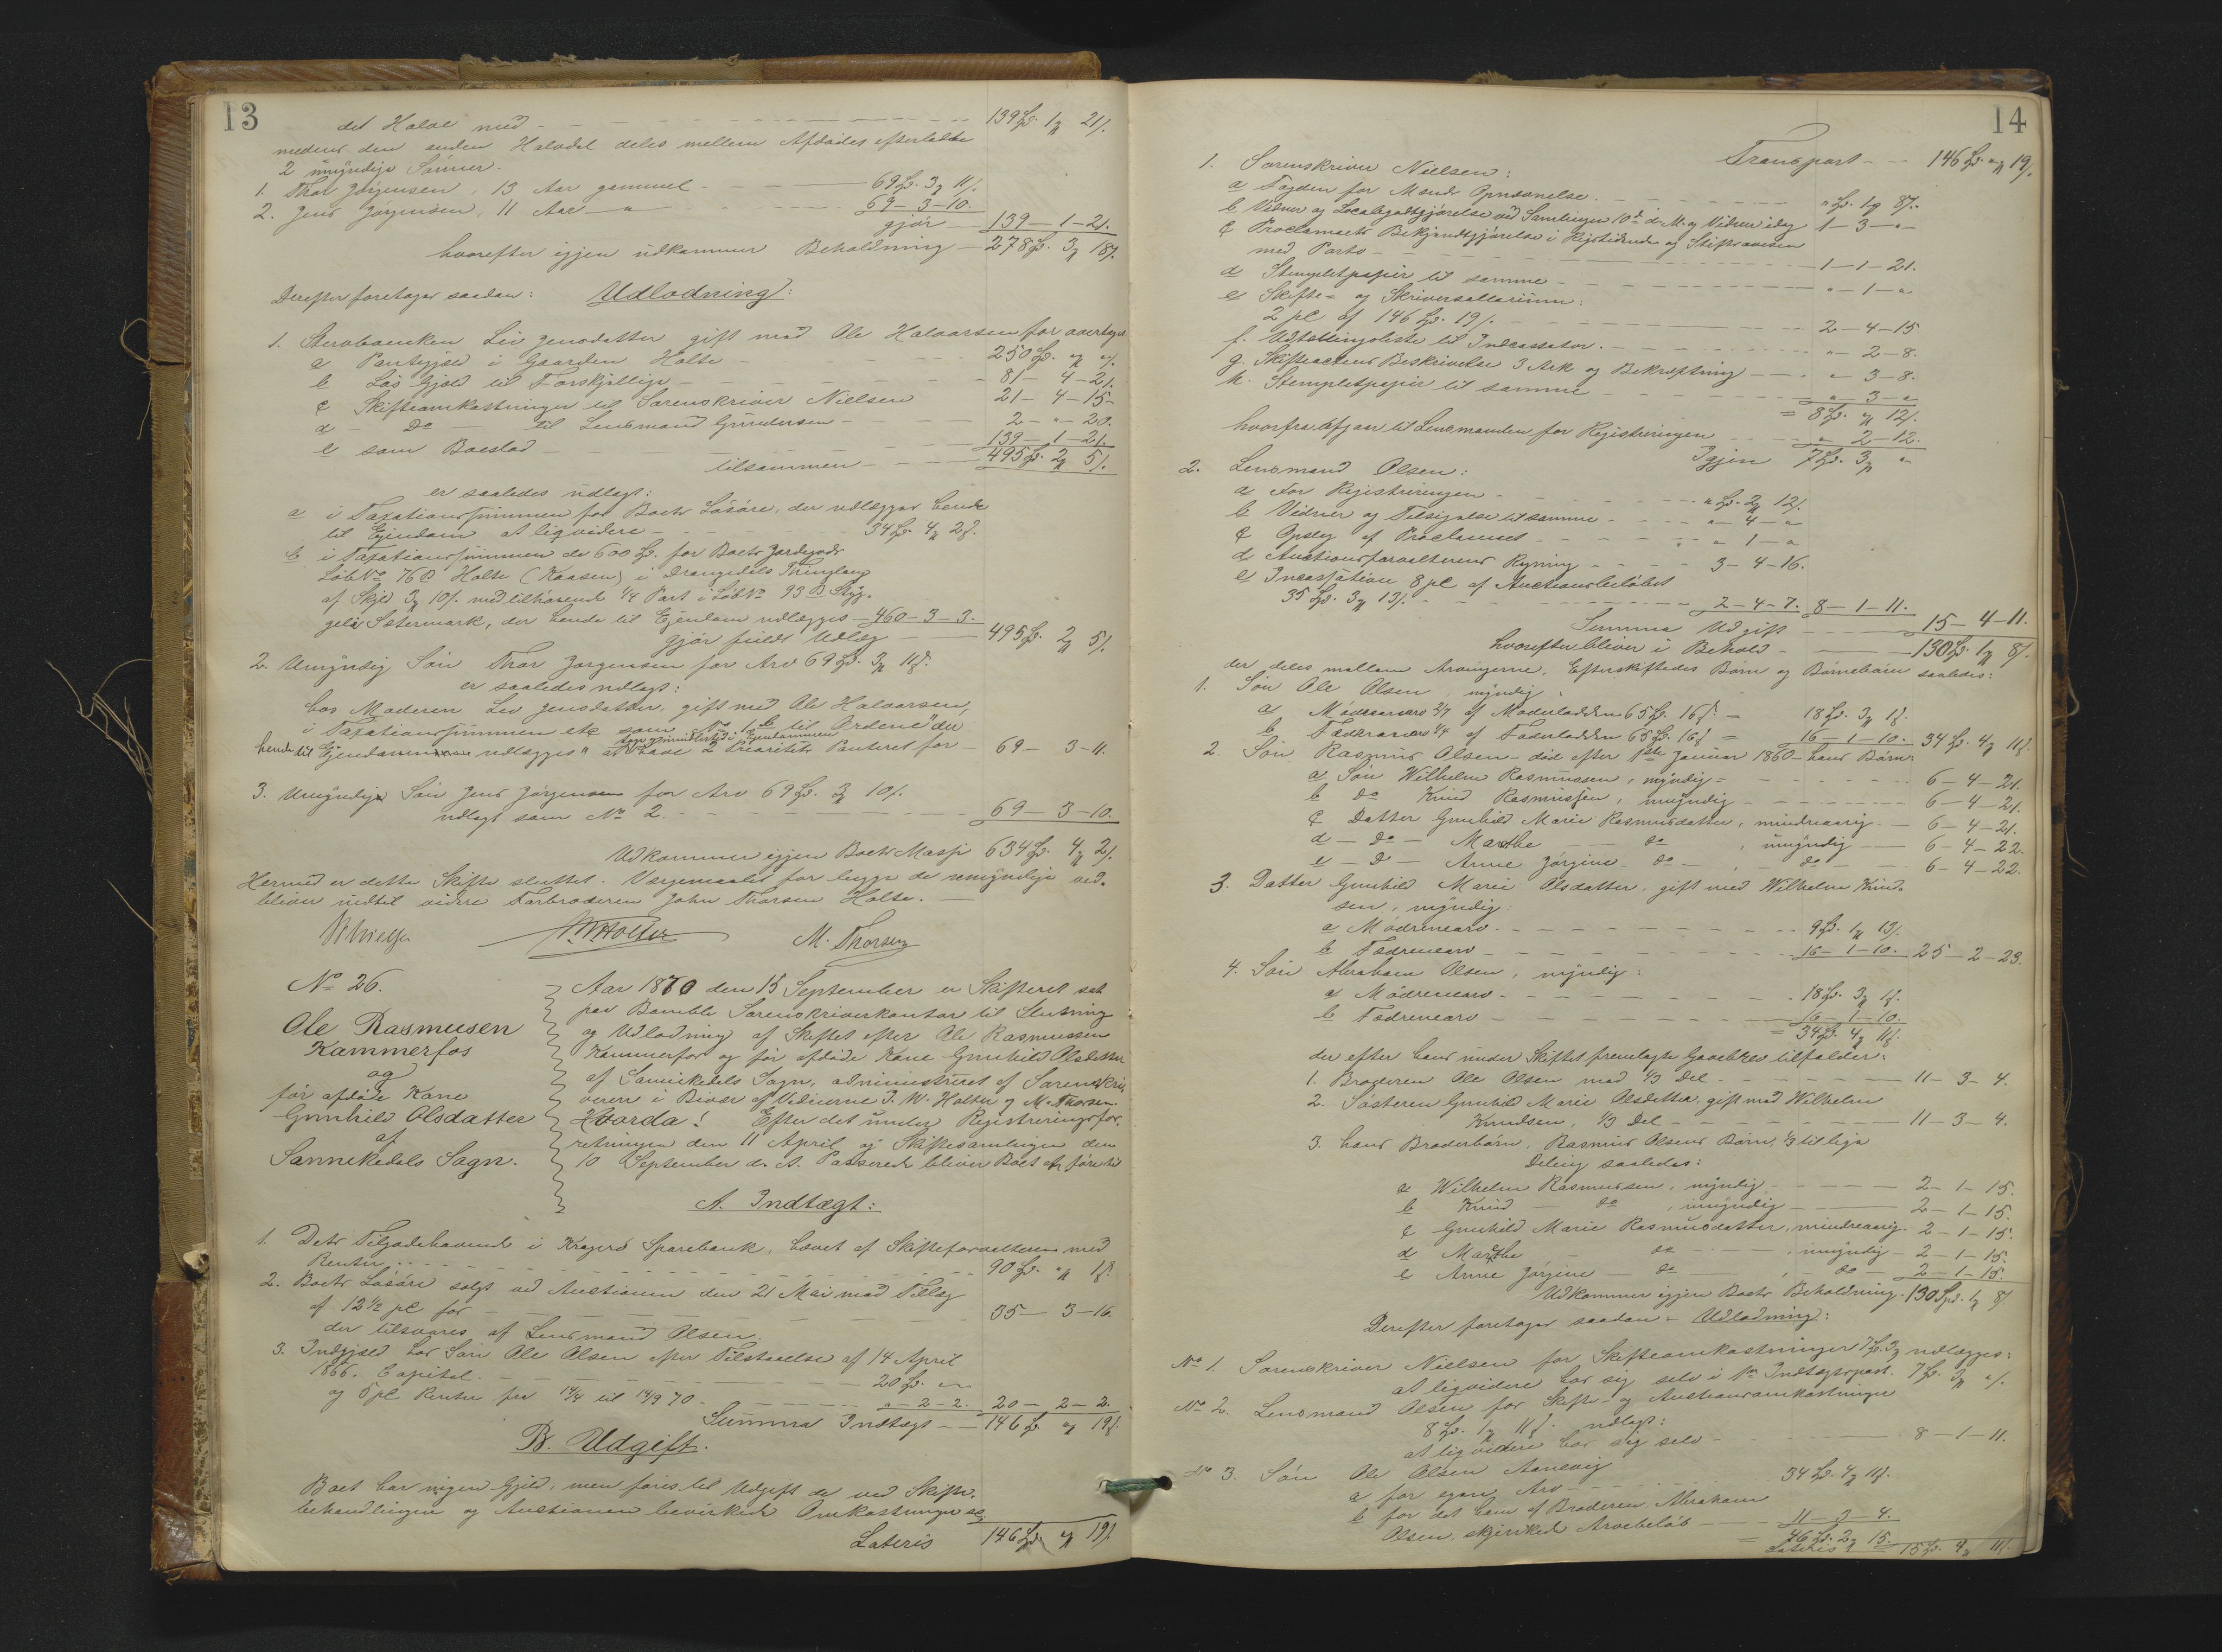 13
det Halve med - - - 139 Spd. 1 # 21 ß.
medens den anden Halvdel deles mellem Afdødes efterladte
2 umyndige Sønner.
1. Thor Jørgensen, 13 Aar gammel - - - 69 Spd. 3 # 11 ß.
2. Jens Jørgensen, 11 Aar — " - - - 69 - 3 - 10.
gjør - 139 - 1 - 21.
hvorefter igjen udkommer Beholdning - 278 Spd. 3 # 18 ß.
Derefter foretages saadan: Udlodning:
1. Stervboenken Liv Jensdatter gift med Ole Halvorsen for overtagen
a Pantegjæld i Gaarden Holte - - - 250 Spd. " # " ß.
b Løs Gjæld til Forskjellige - - - 81 - 4 - 21.
c Skifteomkostninger til Sorenskriver Nielsen 21 - 4 - 15.
d - Do - til Lensmand Gundersen - - - 2 - " - 20.
e som Boeslod - - - 139 - 1 - 21.
tilsammen - - - 495 Spd. 2 # 5 ß.
er saaledes udlagt:
a i Taxationssummen for Boets Løsøre, der udlægges hende
til Eiendom at liqvidere - - - 34 Spd. 4 # 2 ß.
b i Taxationssummen de 600 Spd. for Boets Jordegods
Løb No 76 c Holte (Kaasen) i Drangedals Thinglaug
af Skyld 3 # 10 ß. med tilhørende 1/4 Part i Løb No 93 B
Sætermark, der hende til Eiendom udlægges - 460 - 3 - 3.
gjør fuldt Udlæg - 495 Spd. 2 # 5 ß.
2. Umyndig Søn Thor Jørgensen for Arv 69 Spd. 3 # 11 ß.
er saaledes udlagt:
hos Moderen Liv Jensdatter, gift med Ole Halvorsen,
i Taxationssummen etc som No 1 b til Ordene "der
hende til Eiendom udlægges" at have 2 Prioritets Panteret for - 69 - 3 - 11.
3. Umyndige Søn Jens Jørgensen for Arv 69 Spd. 3 # 10 ß.
udlagt som No 2. - - - 69 - 3 - 10.
Udkommer igjen Boets Masse 634 Spd. 4 # 2 ß.
Hermed er dette Skifte sluttet. Værgemaalet for begge de umyndige ved-
bliver indtil videre Farbroderen John Thorsen Holte.
Nielsen Holter M. Thorsen
No 26.
Ole Rasmusen
Kammerfos
og
før afdøde Kone
Gunhild Olsdatter
af
Sannikedals Sogn.
Aar 1870 den 15 September er Skifteret sat
paa Bamble Sorenskriverkontor til Slutning
og Udlodning af Skiftet efter Ole Rasmussen
Kammerfos og før afdøde Kone Gunhild Olsdatter
af Sannikedals Sogn, administreret af Sorenskri-
veren i Bivær af Vidnerne J. W. Holter og M. Thorsen.
Hvorda! Efter det under Registreringsfor-
retningen den 11 April og Skiftesamlingen den
10 September d. A. Passerede bliver Boet at føre til
A. Indtægt:
1. Dets Tilgodehavende i Kragerø Sparebank, hævet af Skifteforvalteren med
Renter - - - 90 Spd. " # 1 ß.
2. Boets Løsøre solgt ved Auctionen den 21 Mai med Tillæg
af 12 1/2 pC for - - - 35 - 3 - 16.
der tilsvares af Lensmand Olsen.
3. Indgjæld hos Søn Ole Olsen efter Tilstaaelse af 14 April
1866. Capital - - - 20 Spd. " "
og 5 pC Renter fra 14/4 til 14/9 70 - - - " - 2 - 2. 20 - 2 - 2.
Summa Indtægt - - 146 Spd. " # 19 ß.
B. Udgift.
Boet har ingen Gjæld, men føres til Udgift de ved Skifte-
behandlingen og Auctionen bevirkede Omkostninger
Lateris 146 Spd. " # 19 ß.
14
Transport - - 146 Spd. " # 19 ß.
1. Sorenskriver Nielsen:
a Fogden for Mænds Opnævnelse - - - " Spd. 1 # 8 ß.
b Vidner og Localegodtgjørelse ved Samlingen 10de d. M. og Vidner idag 1 - 3 - "
c Proclamaets Bekjendtgjørelse i Rigstidende og Stiftsavisen
med Porto - - - 1 - 1 - 21.
d Stempletpapir til samme - - - " - 1 - "
e Skifte- og Skriversallarium:
2 pC af 146 Spd. 19 ß. - - - 2 - 4 - 15
f. Udtællingsliste til Indcassator. - - - " - 2 - 8.
g. Skifteactens Beskrivelse 3 Ark og Bekræftning - - " - 3 - 8.
h. Stempletpapir til samme - - - " - 3 - "
= 8 Spd. " # 12 ß.
hvorfra afgaar til Lensmanden for Registreringen " 2 - 12.
Igjen 7 Spd. 3 # "
2. Lensmand Olsen:
a for Registreringen - - - " Spd. 2 # 12 ß.
b Vidner og Tilsigelse til samme - - - " - 4 - "
c Opslag af Proclamaet - - - " - 1 - "
d Auctionsforvalterens Regning - - - 3 - 4 - 16.
e Incassation 8 pC af Auctionsbeløbet
35 Spd. 3 # 13 ß. - - - 2 - 4 - 7. 8 - 1 - 11.
Summa Udgift - - - 15 - 4 - 11.
hvorefter bliver i Behold - - - 130 Spd. 1 # 8 ß.
der deles mellem Arvingerne, Efterskiftedes Børn og Børnebørn saaledes:
1. Søn Ole Olsen, myndig
a Mødrenearv 2/7 af Moderlodden 65 Spd. 16 ß. - 18 Spd. 3 # 1 ß.
b Fædrenearv 1/4 af Faderlodden 65 Spd. 16 ß = 16 - 1 - 10. 34 Spd. 4 # 11 ß.
2 Søn Rasmus Olsen - død efter 1ste Januar 1860 - hans Børn:
a Søn Wilhelm Rasmussen, myndig - - - 6 - 4 - 21.
b do Knud Rasmussen, umyndig - - - 6 - 4 - 21.
c Datter Gunhild Marie Rasmusdatter, mindreaarig - 6 - 4 - 21.
d - do - Marthe - do, umyndig - 6 - 4 - 22.
e - d - Anne Jørgine - do - do - 6 - 4 - 22.
3. Datter Gunhild Marie Olsdatter, gift med Wilhelm Knud-
sen, myndig
a Mødrenearv - - - 9 Spd. 1 # 13 ß.
b Fædrenearv - - - 16 - 1 - 10. 25 - 2 - 23.
4. Søn Abraham Olsen, myndig:
a Mødrenearv - - - 18 Spd. 3 # 1 ß.
b Fædrenearv - - - 16 - 1 - 10.
= 34 Spd. 4 # 11 ß.
der efter hans under Skiftet fremlagte Gavebrev tilfalder:
1. Broderen Ole Olsen med 1/3 Del - - - 11 - 3 - 4.
2. Søsteren Gunhild Marie Olsdatter, gift med Wilhelm
Knudsen, 1/3 Del - - - 11 - 3 - 4.
3. hans Broderbørn, Rasmus Olsens Børn, 1/3 til lige
Deling saaledes:
a Wilhelm Rasmussen, myndig - - - 2 - 1 - 15.
b Knud - do, umyndig - - - 2 - 1 - 15.
c Gunhild Marie Rasmusdatter, mindreaarig. 2 - 1 - 15.
d Marthe - do - , umyndig - 2 - 1 - 15.
e Anne Jørgine - do - , do - 2 - 1 - 15.
Udkommer igjen Boets Beholdning. 130 Spd. 1 # 8 ß.
Derefter foretages saadan: Udlodning:
No 1. Sorenskriver Nielsen for Skifteomkostninger 7 Spd. 3 # udlægges:
at liqvidere hos sig selv i 1ste Indtægtspost. 7 Spd. 3 # " ß.
No 2. Lensmand Olsen for Skifte- og Auctionsomkostninger
8 Spd. 1 # 11 ß. udlagt:
at liqvidere hos sig selv - - - 8 - 1 - 11.
No 3. Søn Ole Olsen Aarnevig
a for egen Arv - - - 34 Spd. 4 # 11 ß.
b for det ham af Broderen Abraham
Olsen skjænkede Arvebeløb - - - 11 - 3 - 4.
= 46 Spd. 2 # 15.
Lateris 15 Spd. 4 # 11 ß.